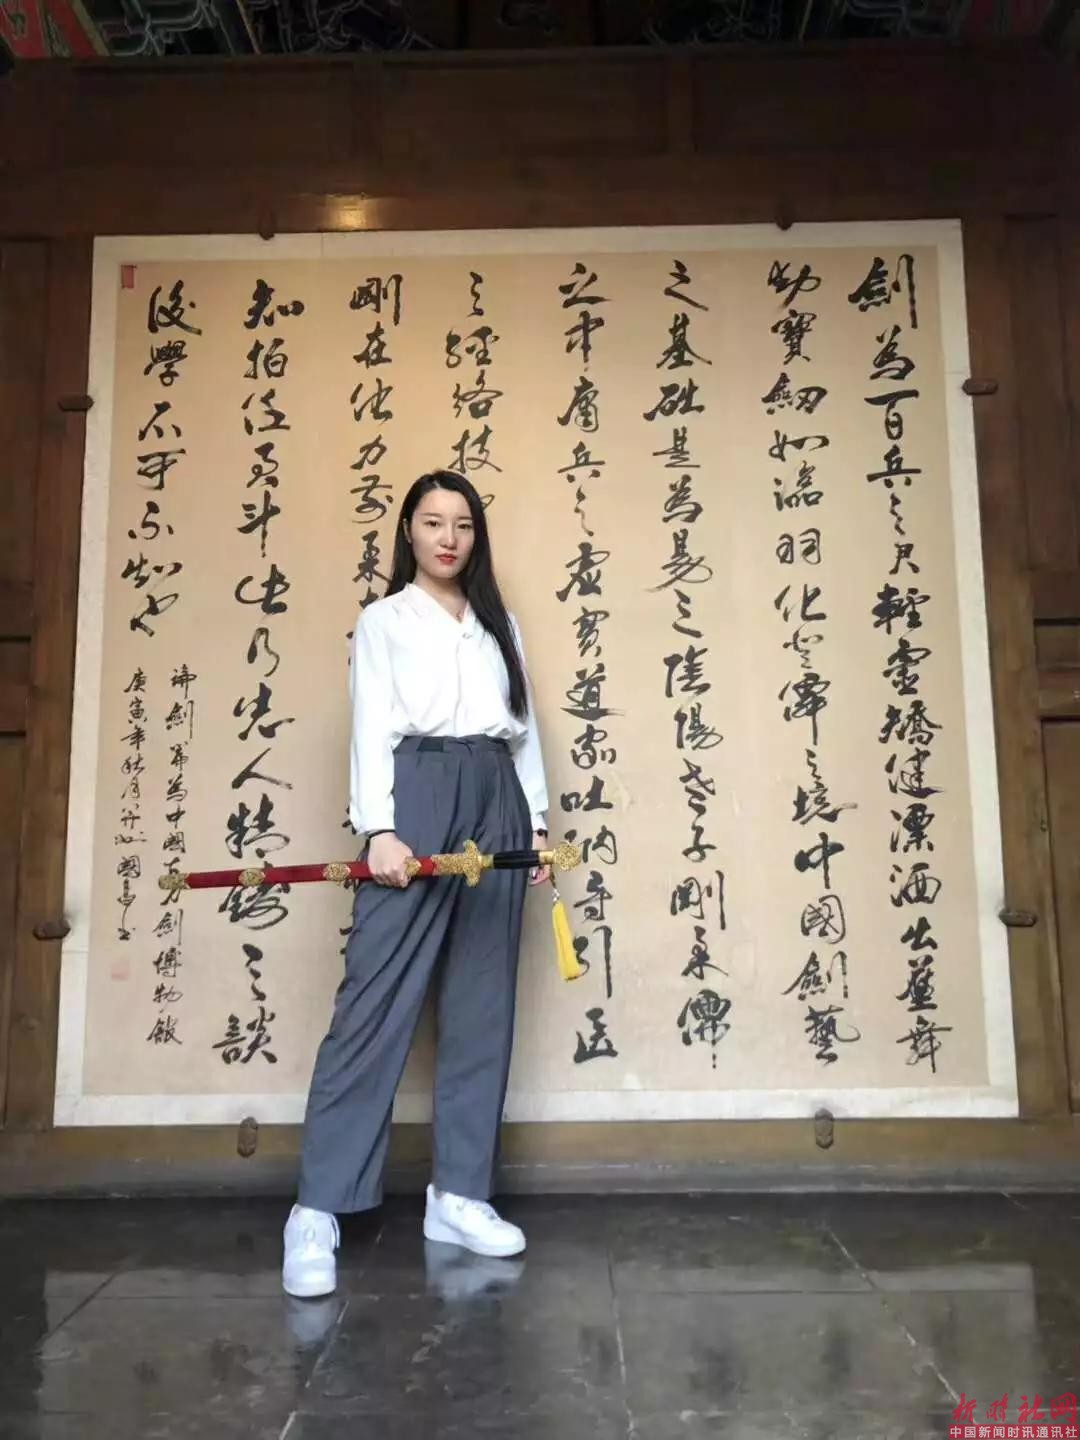 劍為百兵之尺輕靈矯健漂洒出舞
動寶劍如臨羽化登僊之境中國劍藝
之基础是為易之陰陽老子剛柔儒
之中庸兵之虛實道家吐納導引医
之經络技
剛在他力前柔
知拍任君斗此乃人精之談
後學不可不知也
論劍篇為中國劍博物館
庚寅年秋月國书
新时社网
中国新闻时讯通讯社